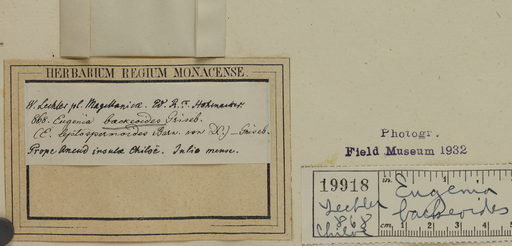 HERBARIUM REGIUM MONACENSE.
W. Lechler pl. Magellanicæ. Ed. R. F. Hohenacker.
868. Eugenia backeoides Griseb.
(E. leptospermoides Bern. non DC) — Griseb.
Prope Ancud insulæ Chiloë. Julio mense.
Photogr.
Field Museum 1932
19918
Lechler
868
Chiloë
in. 1
Eugenia
backeoides
cm. 1 2 3 4 5